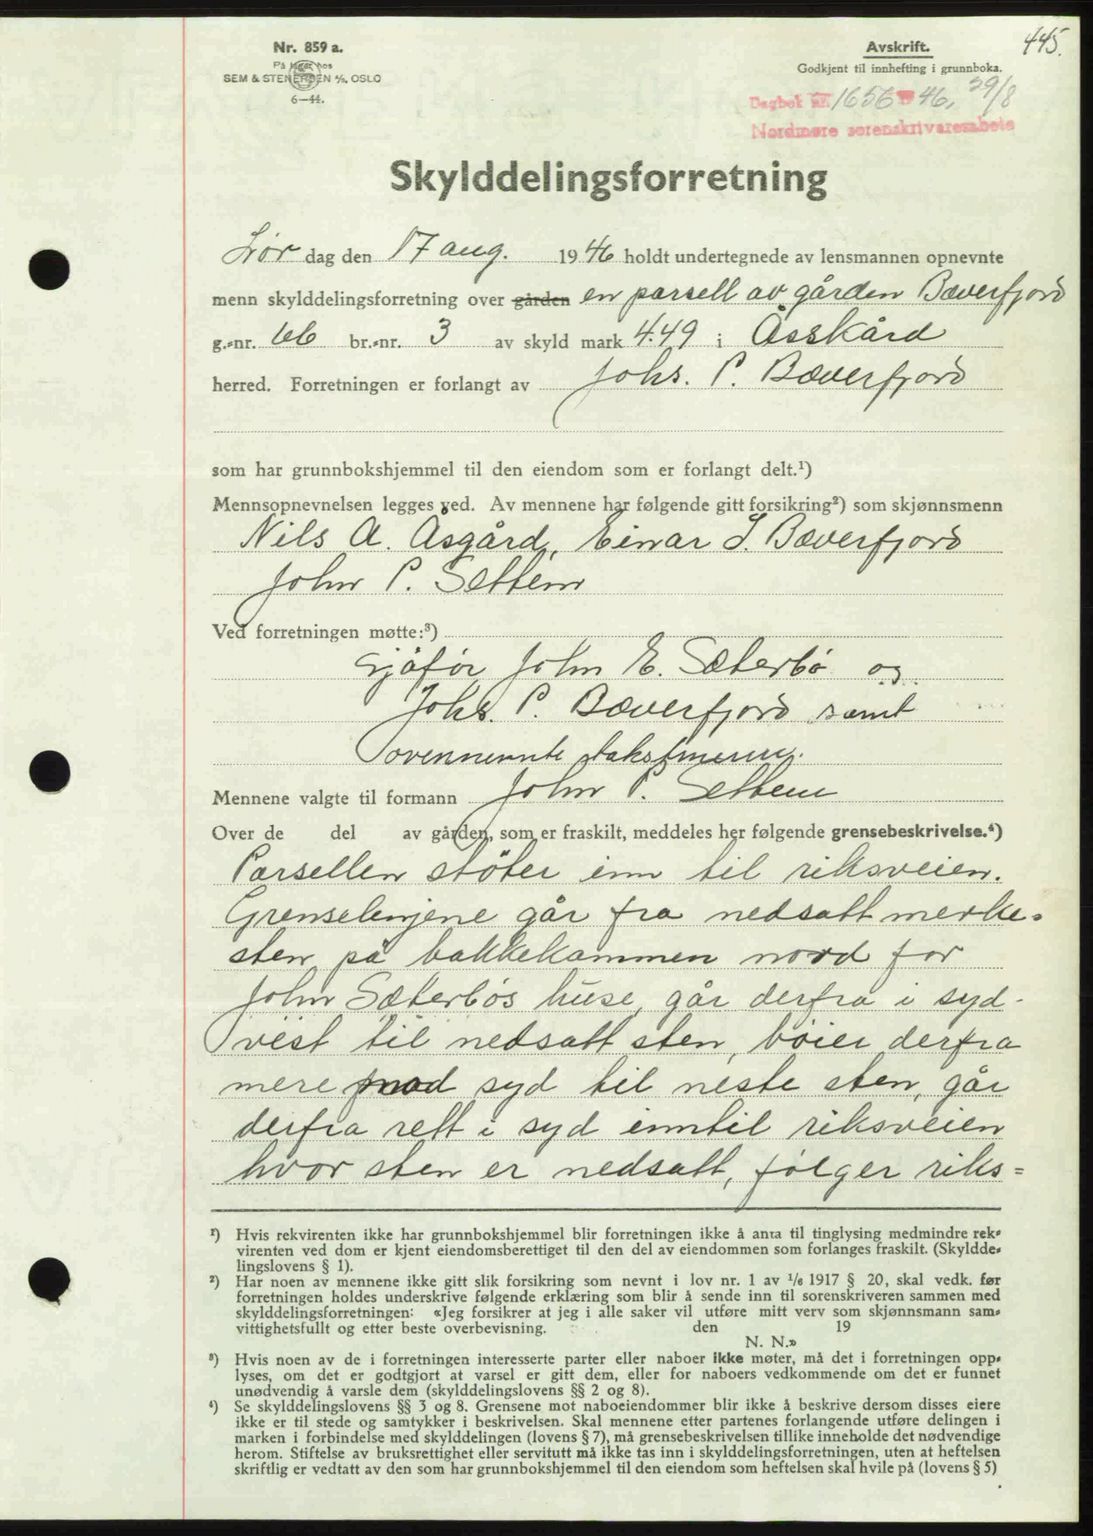 445.
Nr. 859 a.
På lager hos
SEM & STENERSEN A/S, OSLO
6—44.
Avskrift.
Godkjent til innhefting i grunnboka.
Dagbok nr. 1656 46, 29/8
Nordmøre sorenskriverembete
Skylddelingsforretning
Lør dag den 17 aug. 1946 holdt undertegnede av lensmannen opnevnte
menn skylddelingsforretning over gården en parsell av gården Bæverfjord
g.-nr. 66 br.-nr. 3 av skyld mark 4.49 i Åsskård
herred. Forretningen er forlangt av Johs. P. Bæverfjord
som har grunnbokshjemmel til den eiendom som er forlangt delt.¹)
Mennsopnevnelsen legges ved. Av mennene har følgende gitt forsikring²) som skjønnsmenn
Nils A. Åsgård, Einar J. Bæverfjord
John P. Settem
Ved forretningen møtte:³)
Sjåfør John E. Sæterbö og
Johs. P. Bæverfjord samt
ovennevnte takstmenn.
Mennene valgte til formann John P. Settem
Over de del av gården, som er fraskilt, meddeles her følgende grensebeskrivelse.⁴)
Parsellen støter inn til riksveien.
Grenselinjene går fra nedsatt merke-
sten på bakkekammen nord for
John Sæterbös huse, går derfra i syd-
vest til nedsatt sten, böier derfra
mere mod syd til neste sten, går
derfra rett i syd inntil riksveien
hvor sten er nedsatt, følger riks=
¹) Hvis rekvirenten ikke har grunnbokshjemmel blir forretningen ikke å anta til tinglysing medmindre rek-
virenten ved dom er kjent eiendomsberettiget til den del av eiendommen som forlanges fraskilt. (Skyldde-
lingslovens § 1).
²) Har noen av mennene ikke gitt slik forsikring som nevnt i lov nr. 1 av 1/6 1917 § 20, skal vedk. før
forretningen holdes underskrive følgende erklæring som blir å sende inn til sorenskriveren sammen med
skylddelingsforretningen: «Jeg forsikrer at jeg i alle saker vil utføre mitt verv som skjønnsmann sam-
vittighetsfullt og etter beste overbevisning. den 19
N. N.»
³) Hvis noen av de i forretningen interesserte parter eller naboer ikke møter, må det i forretningen opp-
lyses, om det er godtgjort at varsel er gitt dem, eller for naboers vedkommende om det er funnet
unødvendig å varsle dem (skylddelingslovens §§ 2 og 8).
⁴) Se skylddelingslovens §§ 3 og 8. Grensene mot naboeiendommer blir ikke å beskrive dersom disses eiere
ikke er til stede og samtykker i beskrivelsen. Skal mennene etter partenes forlangende utføre delingen i
marken i forbindelse med skylddelingen (lovens § 7), må grensebeskrivelsen tillike inneholde det nødvendige
herom. Stiftelse av bruksrettighet eller servitutt må ikke tas inn i skylddelingsforretningen, uten at heftelsen
skriftlig er vedtatt av den som har grunnbokshjemmel til den eiendom som heftelsen skal hvile på (lovens § 5)